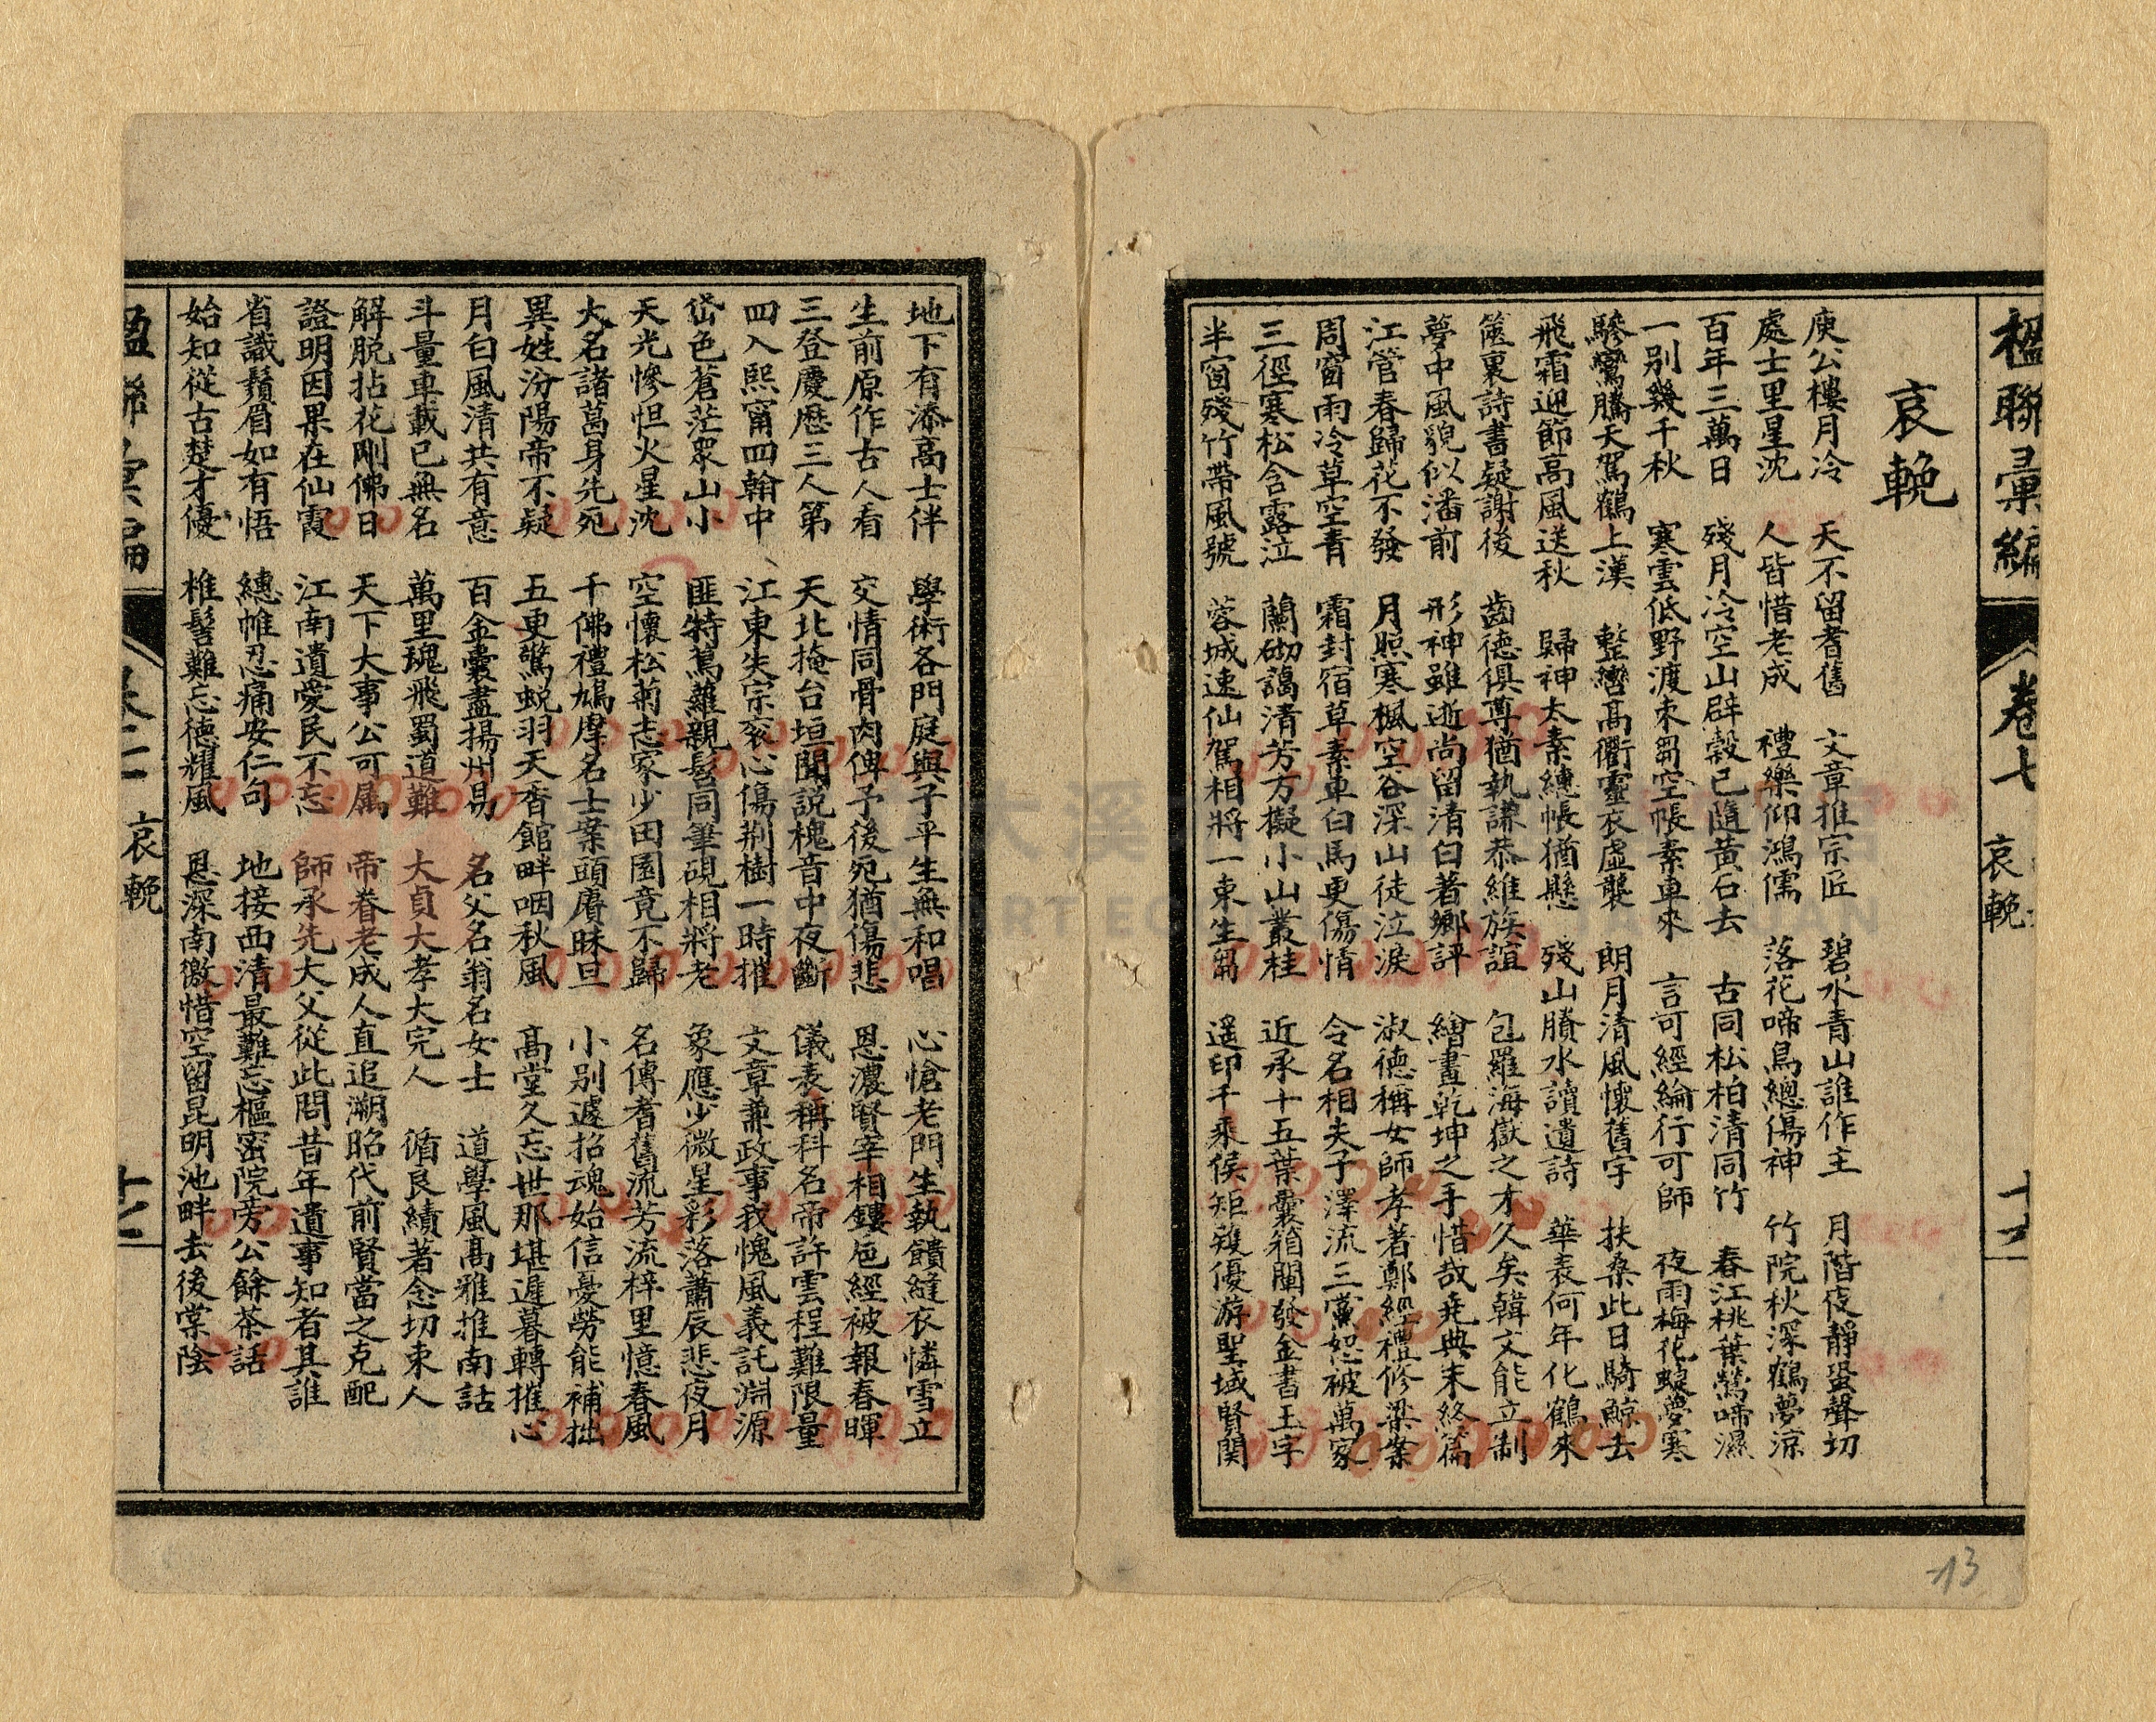 楹聯彙編 卷七 哀輓
哀輓
庾公樓月冷 天不留耆舊 文章推宗匠 碧水青山誰作主 月階夜靜蛩聲切
處士里星沈 人皆惜老成 禮樂仰鴻儒 落花啼鳥總傷神 竹院秋深鶴夢涼
百年三萬日 殘月冷空山辟穀已隨黃石去 古同松柏清同竹 春江桃葉鶯啼濕
一別幾千秋 寒雲低野渡束芻空悵素車來 言可經綸行可師 夜雨梅花蝶夢寒
驂鸞騰天駕鶴上漢 整轡高衢靈衣虛襲 朗月清風懷舊宇 扶桑此日騎鯨去
飛霜迎節高風送秋 歸神太素繐帳猶懸 殘山賸水讀遺詩 華表何年化鶴來
篋裏詩書疑謝後 齒德俱尊猶執謙恭維族誼 包羅海嶽之才久矣韓文能立制
夢中風貌似潘前 形神雖逝尚留清白著鄉評 繪畫乾坤之手惜哉堯典未終篇
江管春歸花不發 月照寒楓空谷深山徒泣淚 淑德稱女師孝著鄭經禮修梁案
周窗雨冷草空青 霜封宿草素車白馬更傷情 令名相夫子澤流三黨恕被萬家
三徑寒松含露泣 蘭砌藹清芳方擬小山叢桂 近承十五葉囊箱闡發金書玉字
半窗殘竹帶風號 蓉城速仙駕相將一束生芻 遥印千乘侯矩矱優游聖域賢関
地下有添高士伴 學術各門庭與子平生無和唱 心愴老門生執饋縫衣憐雪立
生前原作古人看 交情同骨肉俾予後死猶傷悲 恩濃賢宰相鏤卮經被報春暉
三登慶厯三人第 天北掩台垣聞説槐音中夜斷 儀表稱科名帝許雲程難限量
四入熙甯四翰中 江東失宗袞心傷荆樹一時摧 文章兼政事我愧風義託淵源
岱色蒼茫眾山小 匪特蔦蘿親髫同筆硯相將老 象應少微星彩落蕭辰悲夜月
天光慘怛火星沈 空懷松菊志家少田園竟不歸 名傳耆舊流芳流梓里憶春風
大名諸葛身先死 千佛禮鳩摩名士案頭賡昧旦 小別遽招魂始信憂勞能補拙
異姓汾陽帝不疑 五更驚蜕羽天香館畔咽秋風 高堂久忘世那堪遲暮轉摧心
月白風清共有意 百金囊盡揚州易 名父名翁名女士 道學風高雅推南話
斗量車載已無名 萬里魂飛蜀道難 大貞大孝大完人 循良績著念切東人
解脱拈花剛佛日 天下大事公可属 帝眷老成人直追溯昭代前賢當之克配
證明因果在仙霞 江南遺愛民不忘 師承先大父從此問昔年遺事知者其誰
省識鬚眉如有悟 繐帷忍痛安仁句 地接西清最難忘樞密院旁公餘茶話
始知從古楚才優 椎髻難忘德耀風 恩深南徼惜空留昆明池畔去後棠陰
哀輓